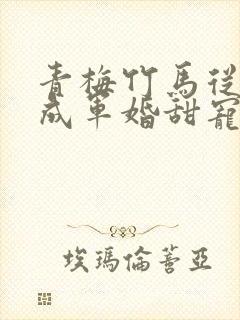 青梅竹馬從
成軍婚甜寵
埃瑪倫蒈亞